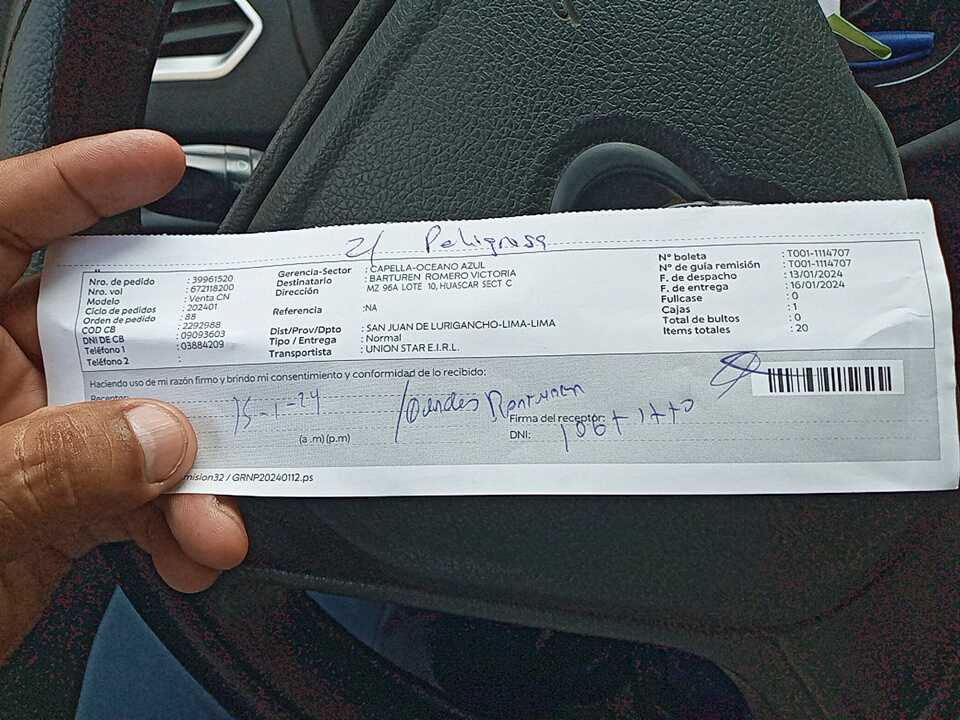 21 Peligrosa
Nro. de pedido : 39961520
Nro. vol : 672118200
Modelo : Venta CN
Ciclo de pedidos : 202401
Orden de pedido : 88
COD CB : 2292988
DNI DE CB : 09093603
Teléfono 1 : 03884209
Teléfono 2 :
Gerencia-Sector : CAPELLA-OCEANO AZUL
Destinatario : BARTUREN ROMERO VICTORIA
Dirección : MZ 96A LOTE 10, HUASCAR SECT C
Referencia :NA
Dist/Prov/Dpto : SAN JUAN DE LURIGANCHO-LIMA-LIMA
Tipo / Entrega : Normal
Transportista : UNION STAR E.I.R.L.
N° boleta : T001-1114707
N° de guía remisión : T001-1114707
F. de despacho : 13/01/2024
F. de entrega : 16/01/2024
Fullcase : 0
Cajas : 1
Total de bultos : 0
Items totales : 20
Haciendo uso de mi razón firmo y brindo mi consentimiento y conformidad de lo recibido:
Receptor:
15-1-24
(a .m) (p.m)
Firma del receptor:
DNI:
mision32 / GRNP20240112.ps